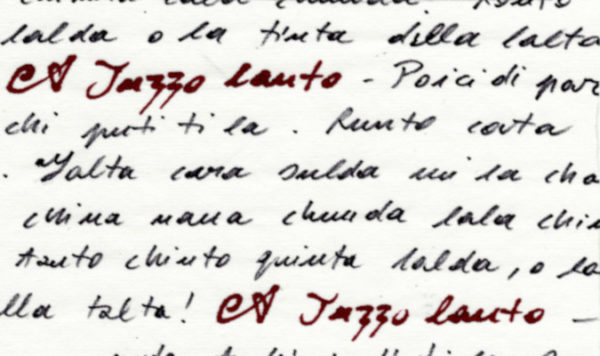 lalda o la tinta dilla lalta
A Juzzo lanto - Poici di par
chi puti ti la . Runto cata
. Yalta cara sulda mi la cha
china nana chunda lala chin
tanto chinto quinta lalda, o la
lla talta! A Juzzo lanto -